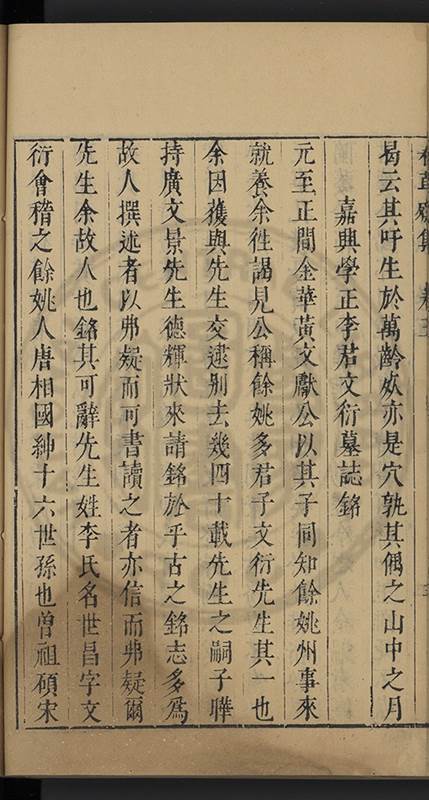 曷云其吁生於萬齡欻亦是穴孰其偶之山中之月
嘉典學正李君文衍墓誌銘
元至正間金華黃文獻公以其子同知餘姚州事來
就養余徃謁見公稱餘姚多君子文衍先生其一也
余因獲與先生交逮別去幾四十載先生之嗣子曄
持廣文景先生德輝狀來請銘於乎古之銘志多爲
故人撰述者以弗疑而可書讀之者亦信而弗疑爾
先生余故人也銘其可辭先生姓李氏名世昌字文
衍會稽之餘姚人唐相國紳十六世孫也曾祖碩宋